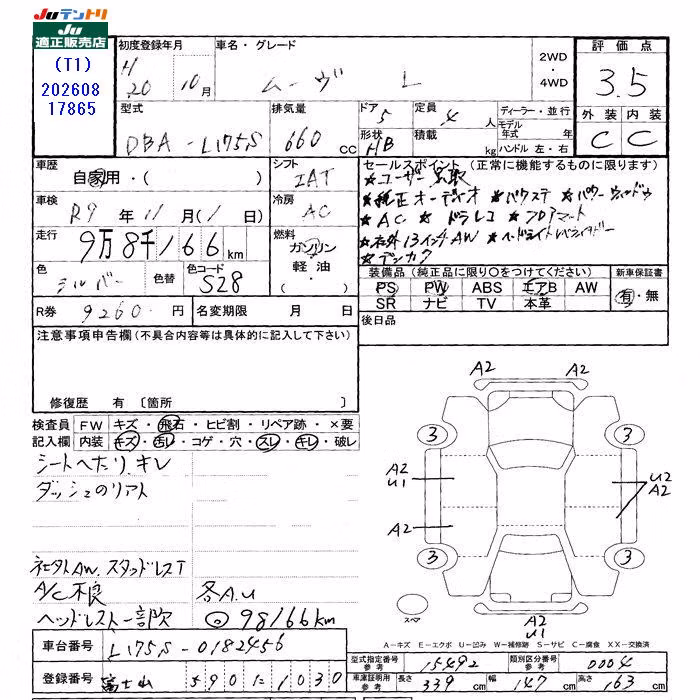 JUテントリ
JU
適正販売店
(T1)
202608
17865
初度登録年月
H
20 10月
車名・グレード
ムーヴ L
2WD
・
4WD
評価点
3.5
外装 内装
C C
型式
DBA-L175S
排気量
660 cc
ドア
5
定員
4 人
形状
HB
積載
kg
ディーラー・並行
モデル
年式 年
ハンドル 左・右
車歴
自家用・( )
シフト
IAT
車検
R9年11月(1日)
冷房
AC
走行
9万8千166km
燃料
ガソリン
軽油・
( )
色
シルバー
色替
色コード
S28
R券 9260円
名変期限 月 日
セールスポイント (正常に機能するものに限ります)
★ユーザー買取
★純正オーディオ ★パワステ ★パワーウィンドウ
★AC ★ドラレコ ★フロアマート
★社外13インチAW ★ヘッドライトレベライザー
★デンカク
装備品 (純正品に限り○をつけてください)
PS PW ABS エアB AW
SR ナビ TV 本革
新車保証書
有・無
後日品
注意事項申告欄(不具合内容等は具体的に記入して下さい)
修復歴 有 〔箇所 〕
検査員
記入欄
FW キズ・飛石・ヒビ割・リペア跡・×要
内装 キズ・汚レ・コゲ・穴・スレ・キレ・破レ
シートヘたり、キレ
ダッシュのリアト
社外AW、スタッドレスT
A/C不良 各A.U
ヘッドレスト一部欠 ◎98166km
A2 A2
3 3
A2
U1
U2
A2
A2
3 3
スペア
A2
U1
A-キズ E-エクボ U-凹み W-補修跡 S-サビ C-腐食 XX-交換済
車台番号 L175S-0182456
登録番号 富士山 590 に 1030
型式指定番号
参考
15492
類別区分番号
参考
0004
車庫証明用
参考
長さ 339cm 幅 147cm 高さ 163cm